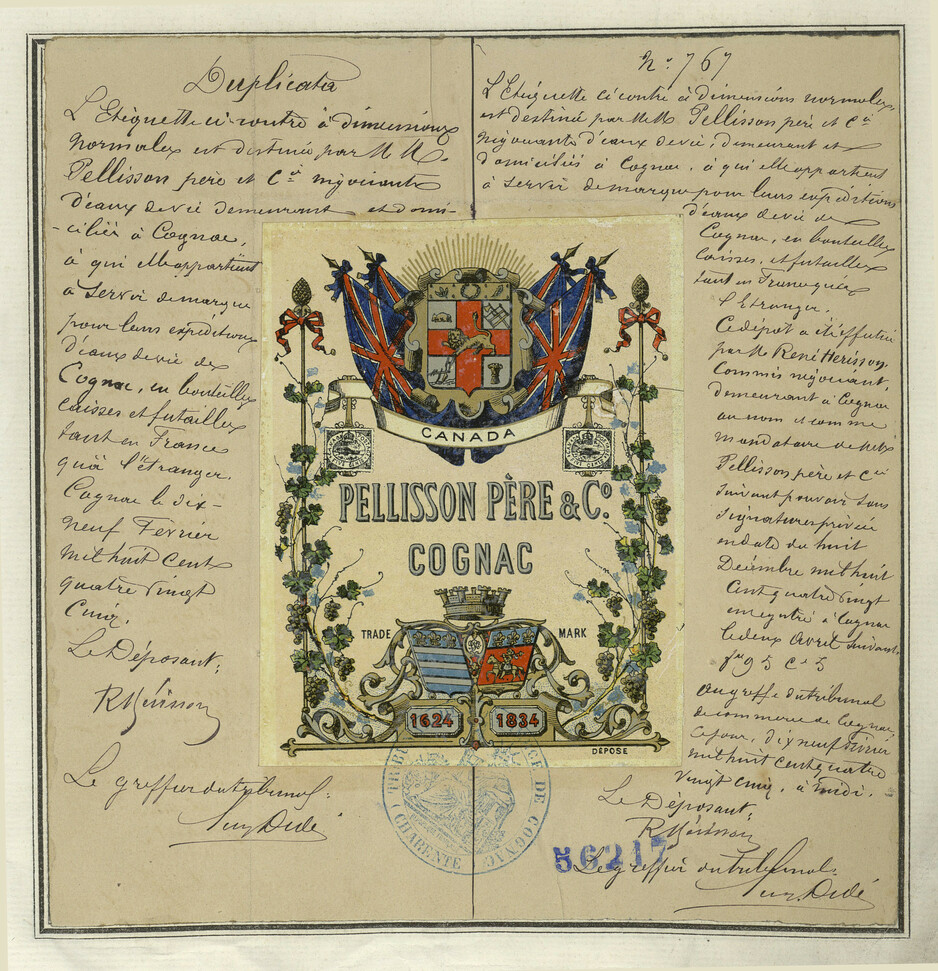 Duplicata
L'Etiquette ci-contre à dimensions
normales est destinée par M M
Pellisson père et Cie négociants
d'eaux de vie demeurant et domi-
-ciliés à Cognac,
à qui elle appartient
à servir de marque
pour leurs expéditions
d'eaux de vie de
Cognac, en bouteilles
caisses et futailles
tant en France
qu'à l'étranger.
Cognac le dix-
neuf Février
mil huit cent
quatre vingt
cinq.
Le Déposant:
R Hérisson
Le greffier du tribunal:
Dedé
No. 767
L'Etiquette ci contre à dimensions normales
est destinée par MM. Pellisson père et Cie
négociants d'eaux de vie, demeurant et
domiciliés à Cognac, à qui elle appartient
à servir de marque pour leurs expéditions
d'eaux de vie de
Cognac, en bouteilles
caisses, et futailles
tant en France qu'à
l'Etranger.
Ce dépôt a été effectué
par M. René Hérisson,
Commis négociant,
demeurant à Cognac
au nom et comme
mandataire de
Pellisson père et Cie
suivant pouvoir sous
signatures privées
en date du huit
Décembre mil huit
Cent quatre vingt
enregistré à Cognac
le deux Avril suivant,
fo 95 Co 5
au greffe du tribunal
de commerce de Cognac,
ce jour, dix neuf Février
mil huit cent quatre
vingt cinq, à midi.
Le Déposant:
R Hérisson
Le greffier du tribunal:
Dedé
CANADA
PELLISSON PÈRE & Co.
COGNAC
TRADE MARK
1624 1834
DÉPOSÉ
TRIBU CE DE COGNAC
(CHARENTE)
56217